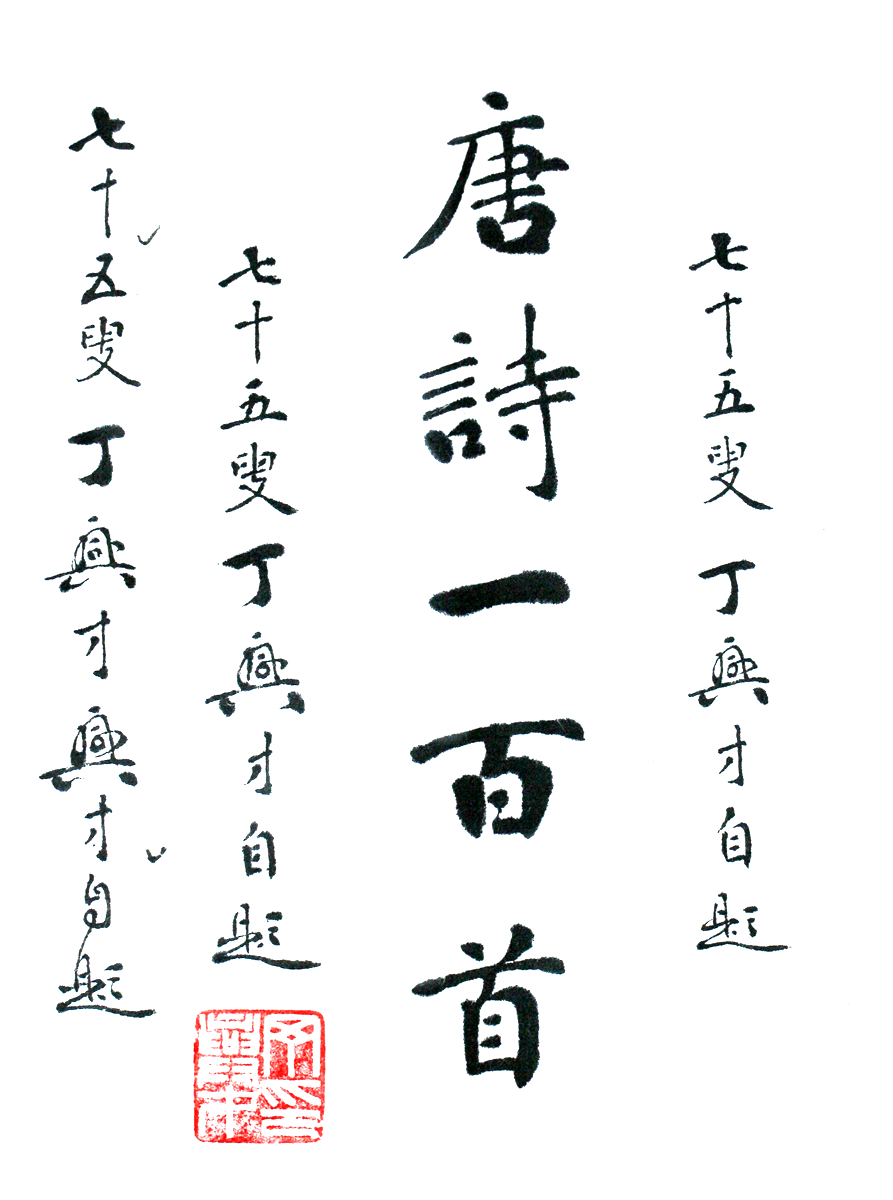 七十五叟 丁興才自题
唐詩一百首
七十五叟丁興才自题
七十五叟丁興才興才自题